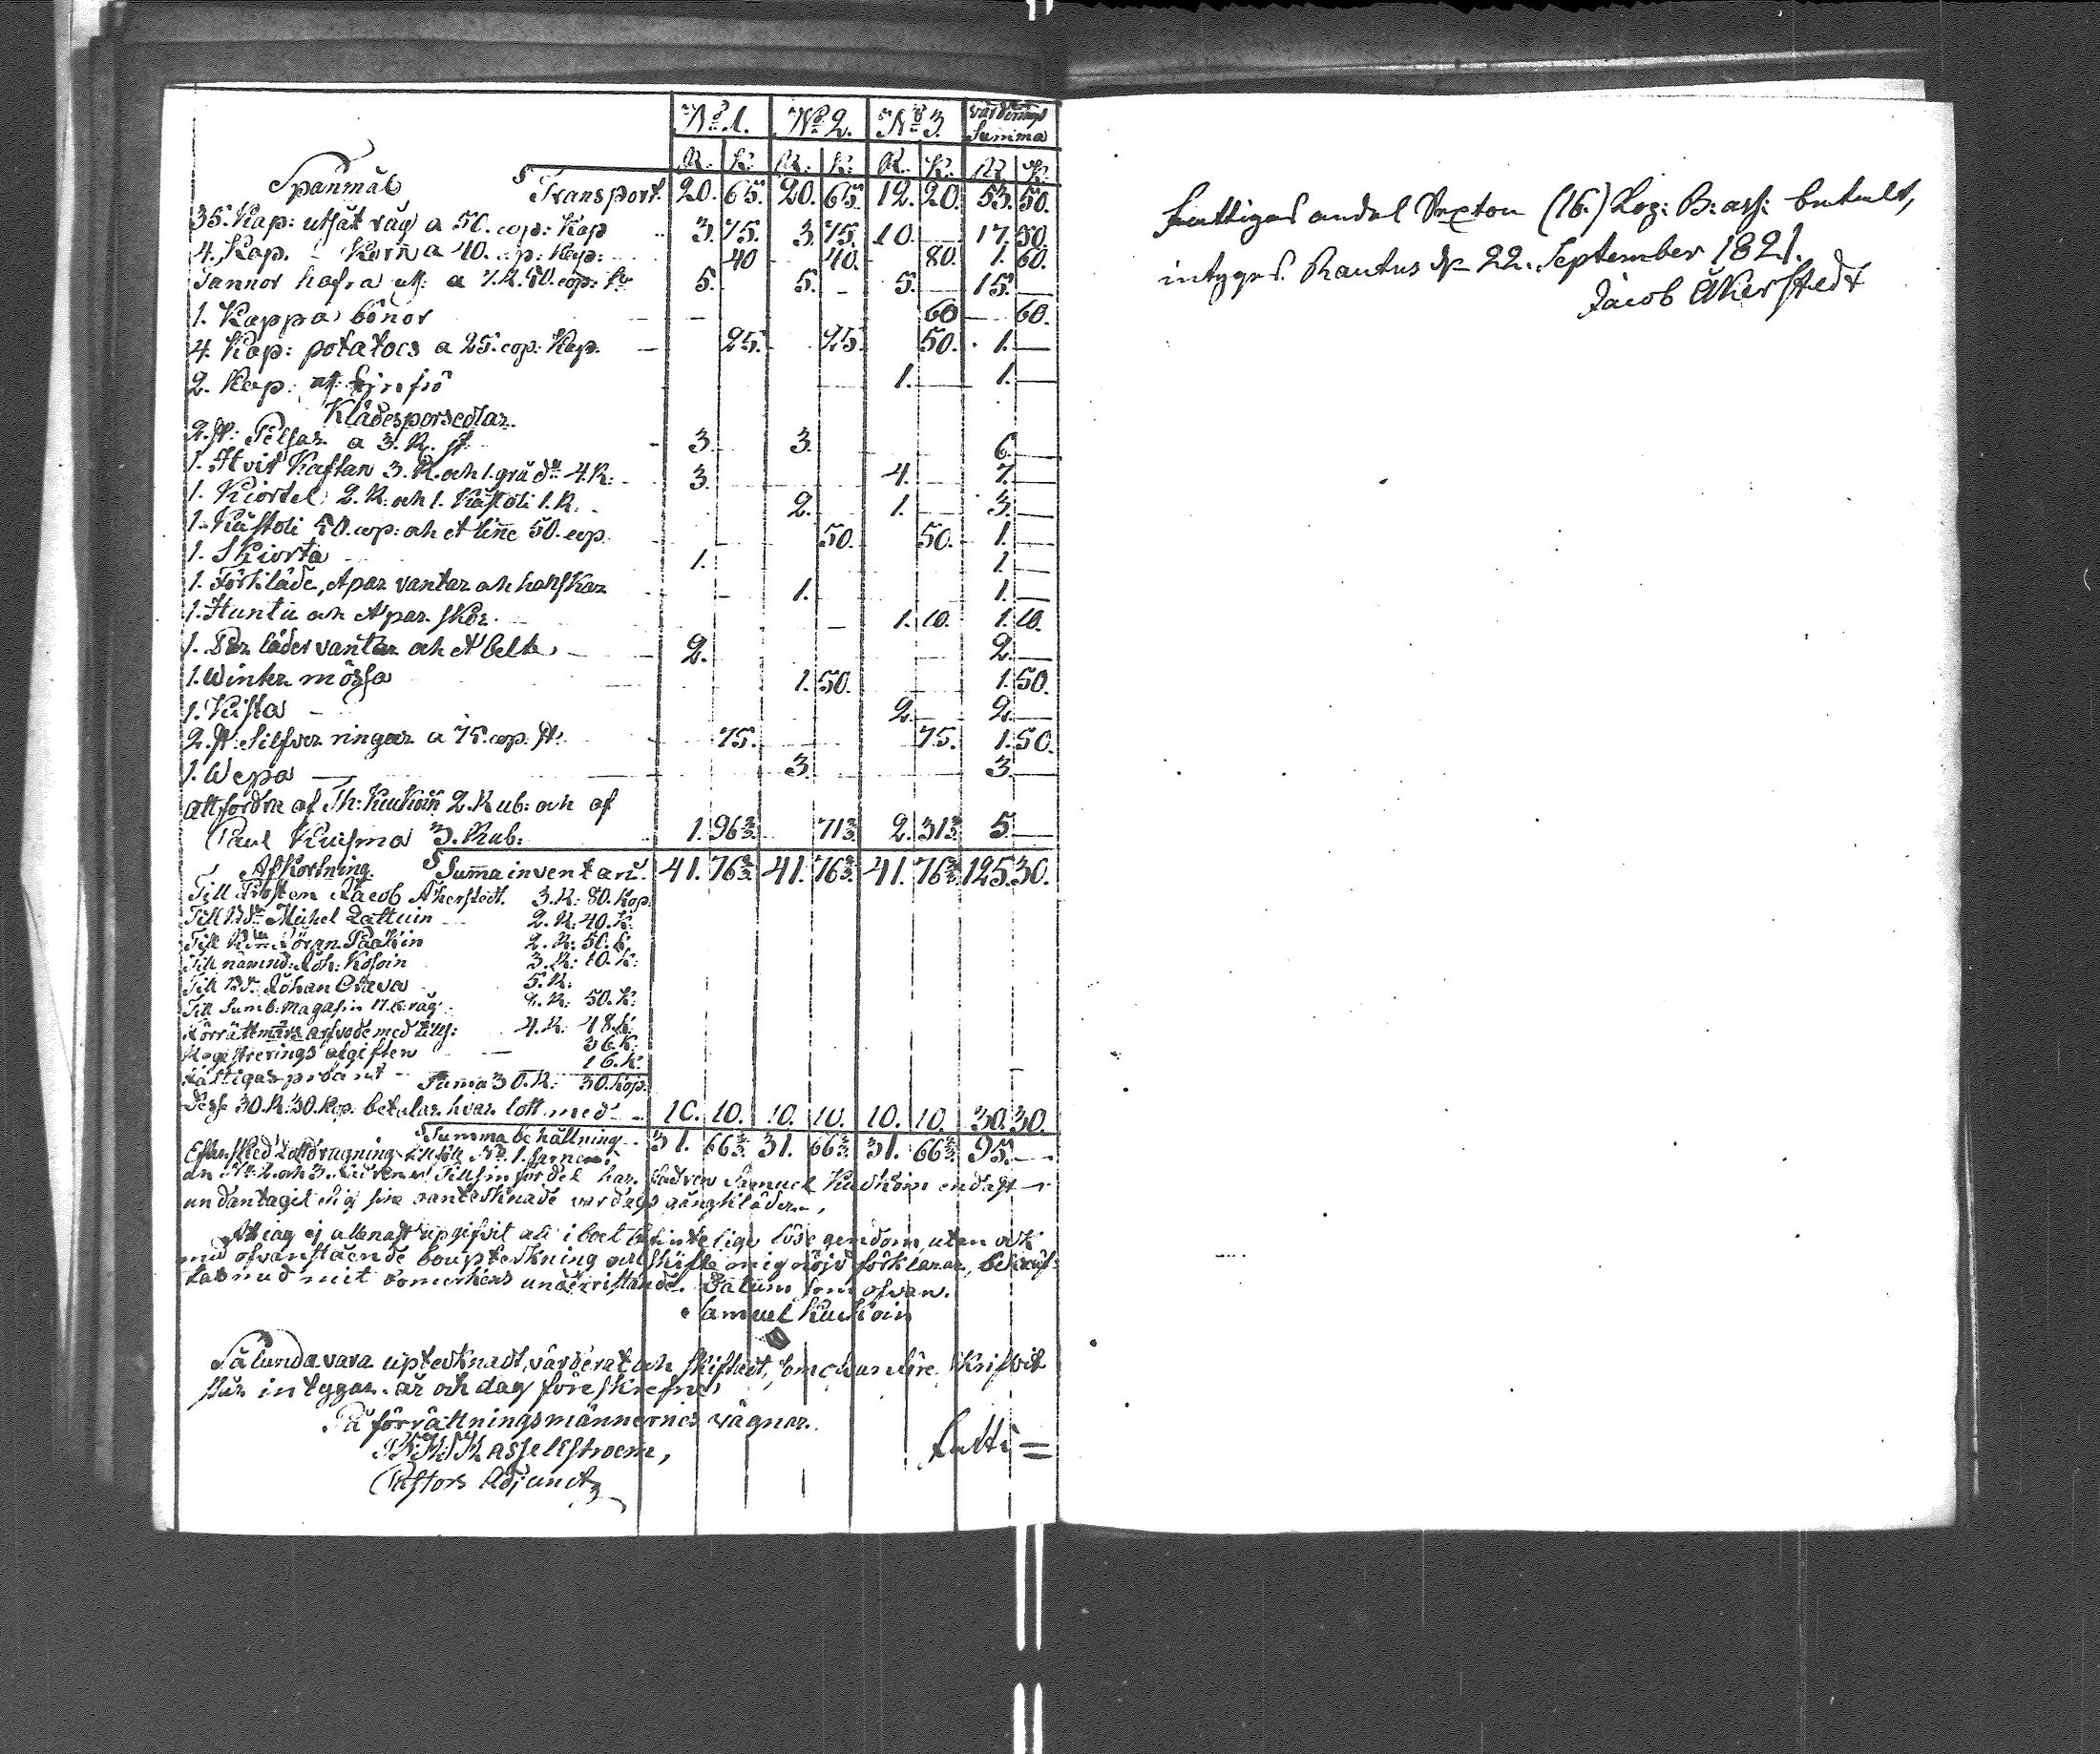 No 1. No 2. No 3. värderings Summa
R. K. R. K. R. K. R K.
Spanmål Transport 20. 65. 20. 65. 12. 20. 53. 50.
35. Kap: utsät råg a 50. cop: Kap 3. 75. 3. 75. 10. — 17. 50.
4. Kap. — Korn a 40. cop: Kap: 40 40. 80. 1. 60.
Tannor hafra a 5. 5. 5. 15. —
1. Kappa bönor 60 60.
4. Kap: potatocs a 25. cop: Kap. 25. 25. 50. 1. —
2. Kap: Linfrö 1. 1. —
Klädespersedlar.
2. st: Pelsar a 3. R. st 3. 3. 6. —
1. Hvit Kaftan 3. R. och 1. grå do 4. R: 3. 4. 7. —
1. Kiortel 2. R. och 1. Kåstoli 1. R. 2. 1. 3. —
1. Kåstoli 50. cop: och et linne 50. cop. 50. 50. 1. —
1. Skiorta 1. 1. —
1. Förkläde, et par vantar och handskar 1. 1. —
1. Huntu och et par skor. 1. 10. 1. 10.
1. Par läder vantar och et belte 2. 2. —
1. Winter mössa 1. 50. 1. 50.
1. Kista 2. 2. —
2. st: Silfver ringar a 75. cop. st: 75. 75. 1. 50.
1. Wepa 3. 3. —
att fordra af Th: Kuukoin 2. Rub: och af
Paul Kuisma 3. Rub. 1. 96 2/3. 71 2/3. 2. 31 2/3. 5. —
Afkortning. Summa inventarii. 41. 76 2/3. 41. 76 2/3. 41. 76 2/3. 125. 30.
Till Prosten Jacob Åkerstedt. 3. R: 80. Kop:
Till Mickel Lattuin 2. R: 40. K:
Till Göran Paakin 2. R: 50. K.
Till nämnd: Joh: Kosoin 3. R: 10. K:
Till Johan Orava 5. R:
Till Sumb: Magasin 17. K: råg 8. R: 50. K:
Förrättmäns arfvode med tillf: 4. R: 48. K:
Registrerings afgiften 36. K.
Fattigas procent 16. K.
Summa 30. R: 30. Kop.
Desse 30. R. 30. Kop. betalar hvar lott med 10. 10. 10. 10. 10. 10. 30. 30.
Summa behållning 31. 66 2/3. 31. 66 2/3. 31. 66 2/3. 95. —
Efter sked Lottdragning tillföll No 1. Barnen;
än No 2. och 3. Fadren. Till sin fördel har Fadren Samuel Kuukoin endast
undantagit sig sine oantecknade vardags gångkläder.
At jag ej allenast upgifvit all i boet befintelige lösegendom, utan ock
med ofvanstående bouptekning och skifte mig nöjd förklarar, bekräf-
tas med mit bomerkens undérrittande. Datum som ofvan.
Samuel Kuukoin
Sålunda vara uptecknadt, värderat och skiftadt, som skrifvit
står intygar. år och dag föreskrefne.
På förrättningsmännernes vägnar.
Kasselstroem,
Pastors Adjunct
Fatti=
Fattigas andel Sexton (16.) Kop: B: ass: betalt,
intygas. Rautus d. 22. September 1821.
Jacob Åkerstedt